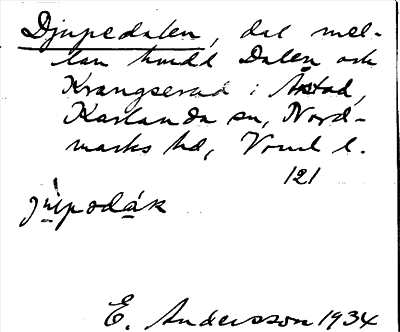 Djupedalen, dal mel-
lan hmdl Dalen och
Krangserud i Åstad,
Karlanda sn, Nord-
marks hd, Vrml l.
121
E. Andersson 1934